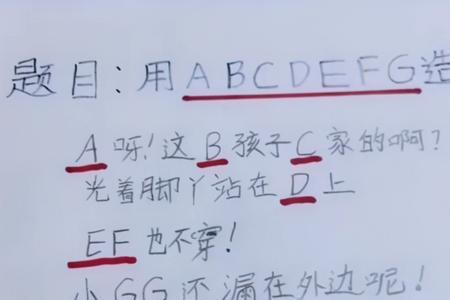 题目:用ABCDEFG造
A呀!这B孩子C家的啊?
光着脚丫站在D上
EF也不穿!
小GG还漏在外边呢!